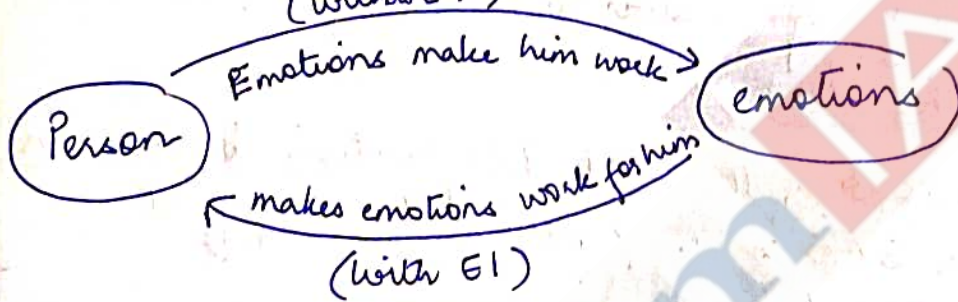 Emotions make him work
Person
emotions
makes emotions work for him
(with EI)